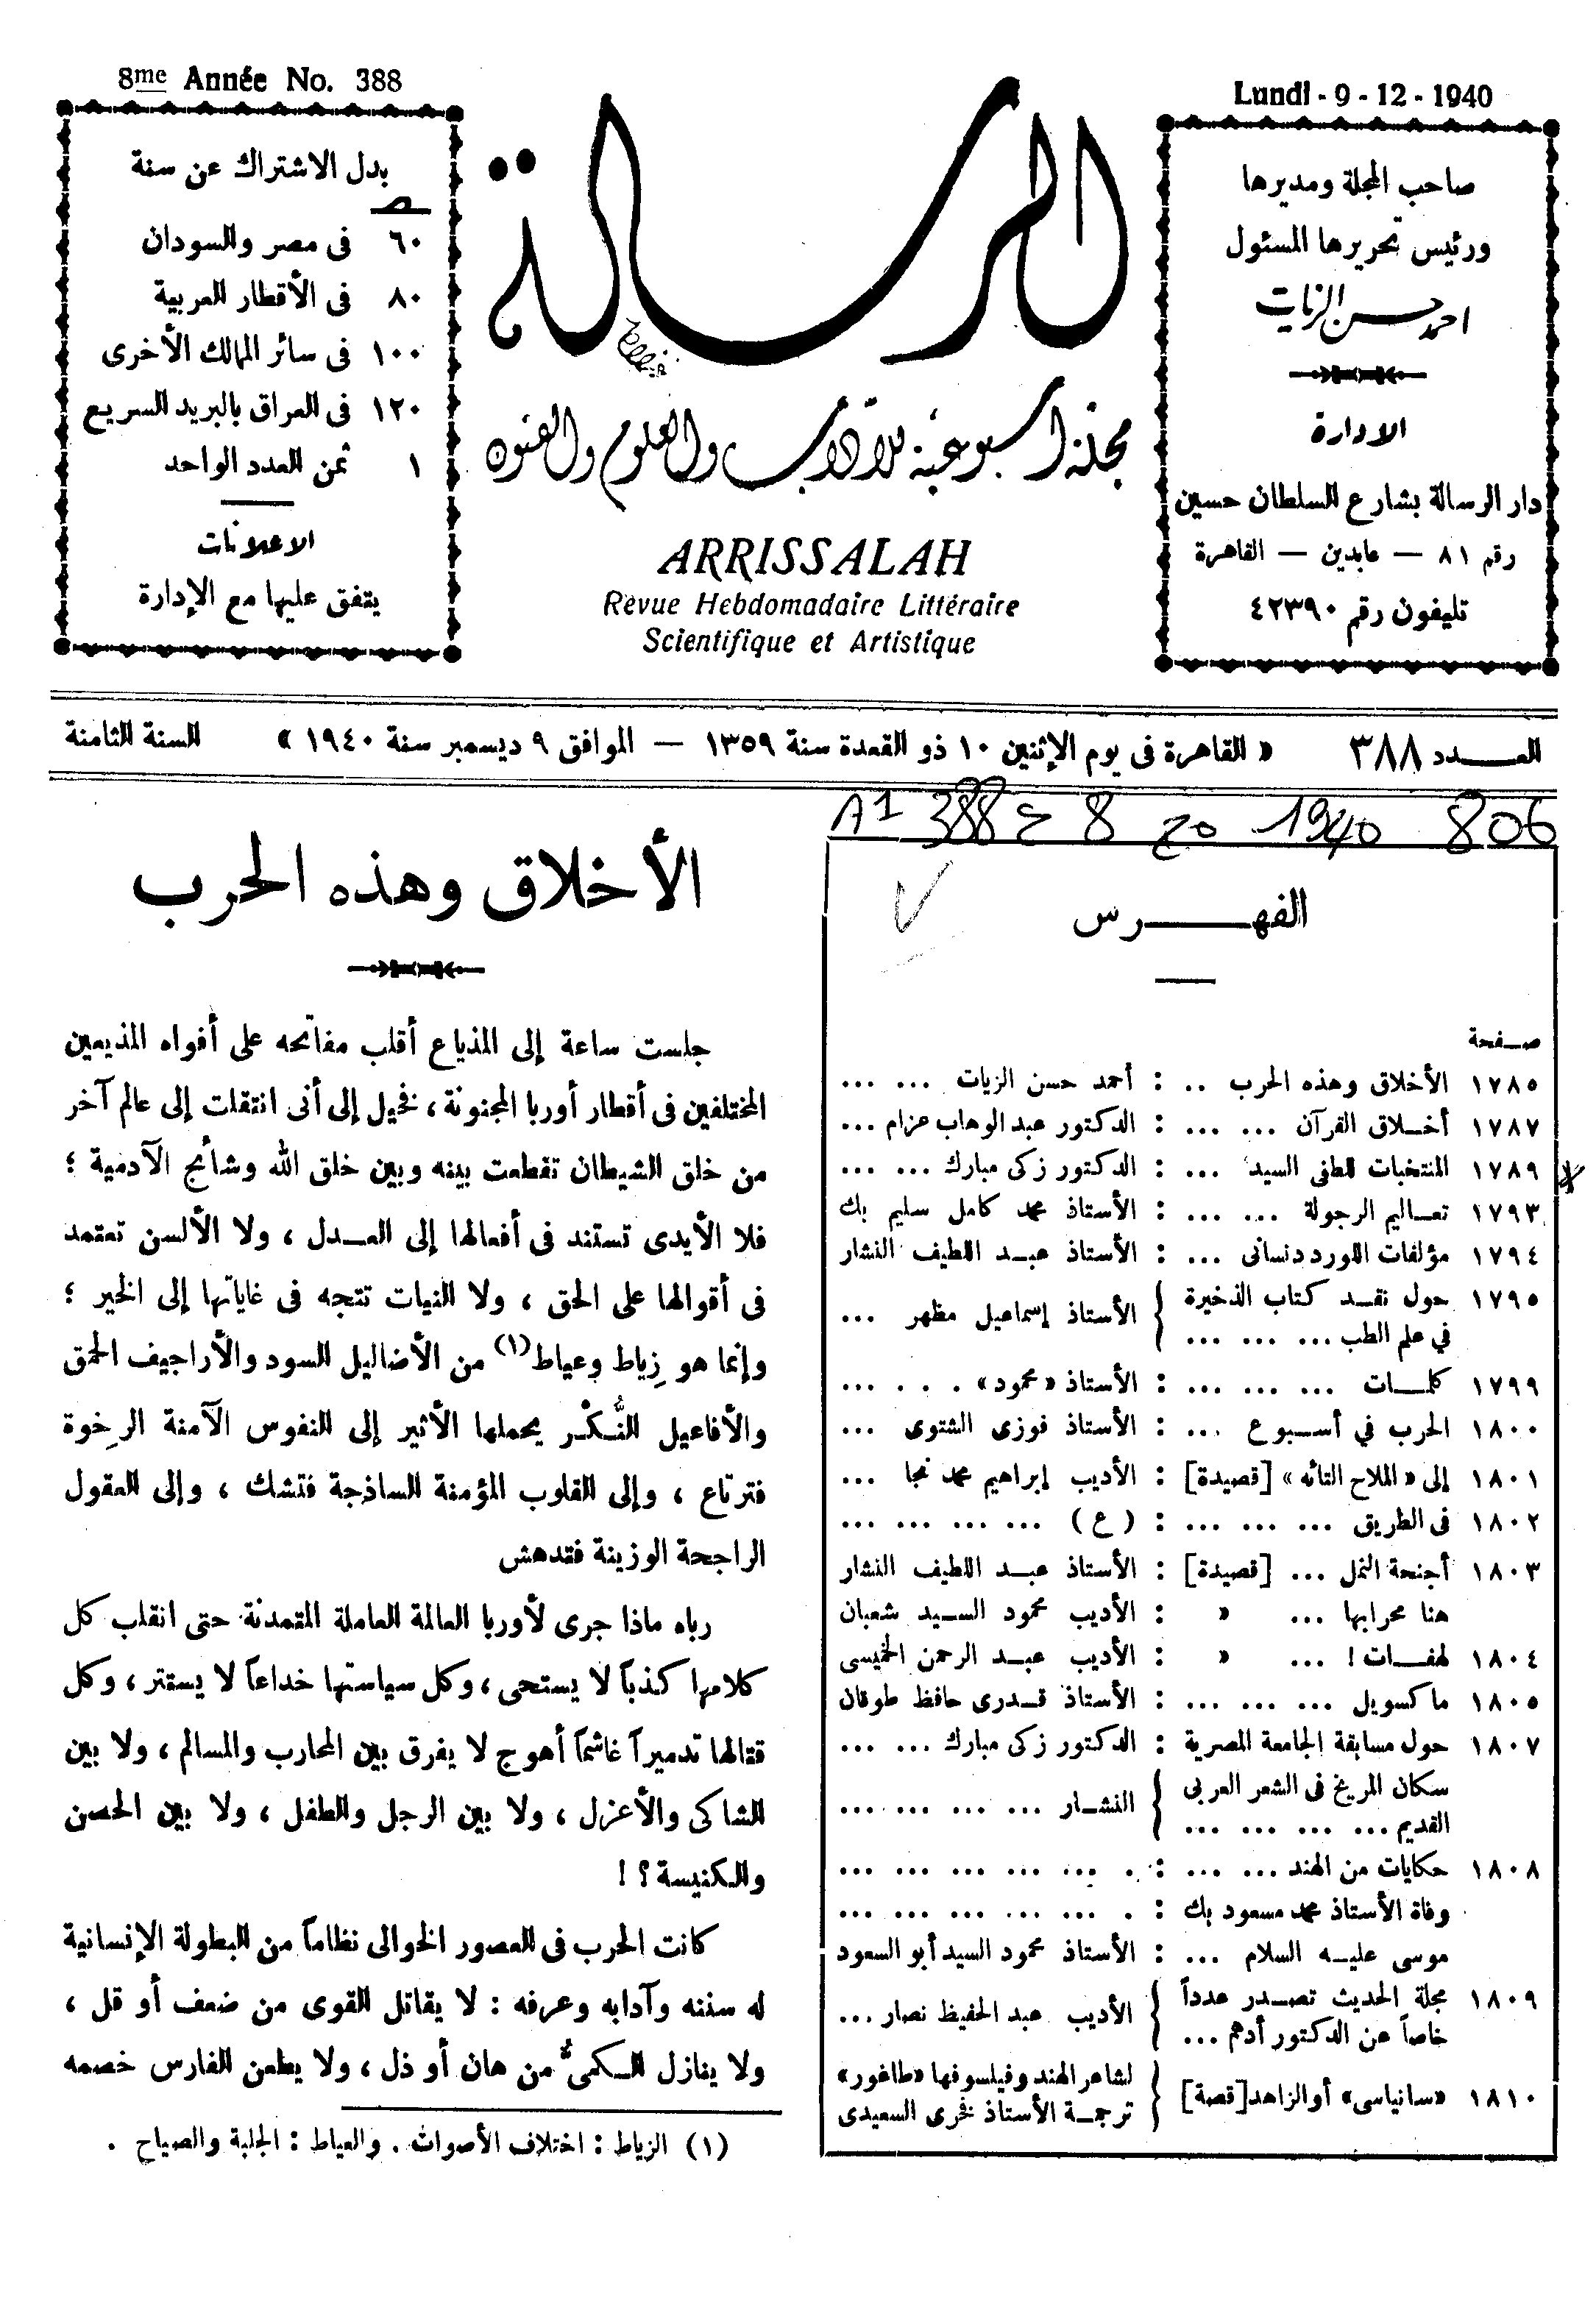 8me Année No. 388
Lundi - 9 - 12 - 1940
صاحب المجلة ومديرها
ورئيس تحريرها المسئول
احمد حسن الزيات
الادارة
دار الرسالة بشارع السلطان حسين
رقم ٨١ — عابدين — القاهرة
تليفون رقم ٤٢٣٩٠
الرسالة
مجلة أسبوعية للآداب والعلوم والفنون
ARRISSALAH
Revue Hebdomadaire Littéraire
Scientifique et Artistique
بدل الاشتراك عن سنة
٦٠ فى مصر والسودان
٨٠ فى الأقطار العربية
١٠٠ فى سائر الممالك الأخرى
١٢٠ فى العراق بالبريد السريع
١ ثمن العدد الواحد
الاعلانات
يتفق عليها مع الإدارة
العـــدد ٣٨٨ « القاهرة فى يوم الإثنين ١٠ ذو القعدة سنة ١٣٥٩ — الموافق ٩ ديسمبر سنة ١٩٤٠ » السنة الثامنة
806 1940 مج 8 ع 388 A1
الفهـــرس
صفحة
١٧٨٥ الأخلاق وهذه الحرب .. : أحمد حسن الزيات ... ...
١٧٨٧ أخـلاق القرآن ... ... : الدكتور عبد الوهاب عزام ...
١٧٨٩ المنتخبات للطفى السيد ... : الدكتور زكى مبارك ... ...
١٧٩٣ تعـاليم الرجولة ... ... : الأستاذ محمد كامل سليم بك
١٧٩٤ مؤلفات اللورد دنسانى ... : الأستاذ عبـد اللطيف النشار
١٧٩٥ حول نقـد كتاب الذخيرة في علم الطب ... ... ... } الأستاذ إسماعيل مظهر ...
١٧٩٩ كلمـات ... ... ... : الأستاذ «محمود» . . . ...
١٨٠٠ الحرب في أسـبوع ... : الأستاذ فوزى الشتوى ...
١٨٠١ إلى «الملاح التائه» [قصيدة] : الأديب إبراهيم محمد نجا ...
١٨٠٢ فى الطريق ... ... ... : (ع) ... ... ... ...
١٨٠٣ أجنحة النمل ... [قصيدة] : الأستاذ عبـد اللطيف النشار
هنا محرابها ... » : الأديب محمود السـيد شعبان
١٨٠٤ لهفـات ! ... » : الأديب عبـد الرحمن الخميسى
١٨٠٥ ماكسويل ... ... ... : الأستاذ قـدرى حافظ طوقان
١٨٠٧ حول مسابقة الجامعة المصرية : الدكتور زكى مبارك ... ...
سكان المريخ فى الشعر العربى القديم ... ... ... ... } النشـار ... ... ... ...
١٨٠٨ حكايات من الهند ... ... : . ... ... ... ... ...
وفاة الأستاذ محمد مسعود بك : . ... ... ... ... ...
موسى عليـه السلام ... : الأستاذ محمود السيد أبو السعود
١٨٠٩ مجلة الحديث تصـدر عدداً خاصاً عن الدكتور أدهم ... } الأديب عبد الحفيظ نصار ...
١٨١٠ «سانياسى» أو الزاهد [قصة] } لشاعر الهند وفيلسوفها «طاغور» ترجمـة الأستاذ فخرى السعيدى
الأخلاق وهذه الحرب
جلست ساعة إلى المذياع أقلب مفاتحه على أفواه المذيعين
المختلفين فى أقطار أوربا المجنونة ، فخيل إلى أنى انتقلت إلى عالم آخر
من خلق الشيطان تقطعت بينه وبين خلق الله وشائج الآدمية ؛
فلا الأيدى تستند فى أفعالها إلى العـدل ، ولا الألسن تعتمد
فى أقوالها على الحق ، ولا النيات تتجه فى غاياتها إلى الخير ؛
وإنما هو زِياط وعياط(١) من الأضاليل السود والأراجيف الحمق
والأفاعيل النُّكْر يحملها الأثير إلى النفوس الآمنة الرخوة
فترتاع ، وإلى القلوب المؤمنة الساذجة فتشك ، وإلى العقول
الراجحة الوزينة فتدهش
رباه ماذا جرى لأوربا العالمة العاملة المتمدنة حتى انقلب كل
كلامها كذباً لا يستحى ، وكل سياستها خداعاً لا يستتر ، وكل
قتالها تدميراً غاشماً أهوج لا يفرق بين المحارب والمسالم ، ولا بين
الشاكى والأعزل ، ولا بين الرجل والطفل ، ولا بين الحصن
والكنيسة ؟ !
كانت الحرب فى العصور الخوالى نظاماً من البطولة الإنسانية
له سننه وآدابه وعرفه : لا يقاتل القوى من ضعف أو قل ،
ولا ينازل الكمىُّ من هان أو ذل ، ولا يطعن الفارس خصمه
(١) الزياط : اختلاف الأصوات . والعياط : الجلبة والصياح .